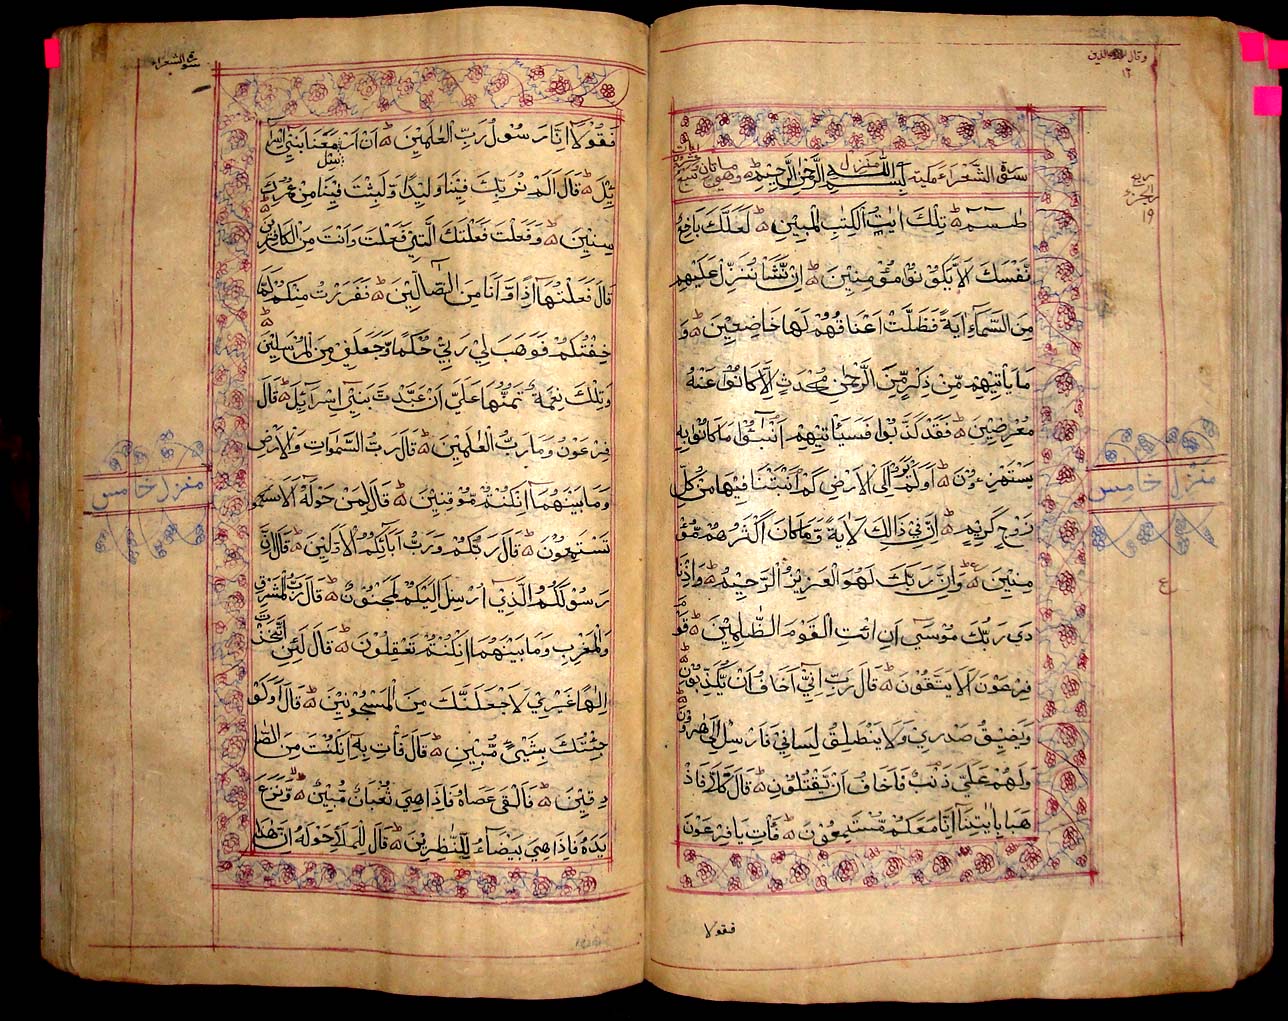 وقال الذين
١٩
سورة الشعراء مكية بسم الله الرحمن الرحيم وهي مائتان
طسم تِلْكَ اٰيٰتُ الْكِتٰبِ الْمُبِيْنِ لَعَلَّكَ بَاخِعٌ
نَّفْسَكَ اَلَّا يَكُوْنُوْا مُؤْمِنِيْنَ اِنْ نَّشَأْ نُنَزِّلْ عَلَيْهِمْ
مِنَ السَّمَآءِ اٰيَةً فَظَلَّتْ اَعْنَاقُهُمْ لَهَا خَاضِعِيْنَ وَ
مَا يَأْتِيْهِمْ مِّنْ ذِكْرٍ مِّنَ الرَّحْمٰنِ مُحْدَثٍ اِلَّا كَانُوْا عَنْهُ
مُعْرِضِيْنَ فَقَدْ كَذَّبُوْا فَسَيَأْتِيْهِمْ اَنْبٰٓؤُا مَا كَانُوْا بِهٖ
يَسْتَهْزِءُوْنَ اَوَلَمْ يَرَوْا اِلَى الْاَرْضِ كَمْ اَنْبَتْنَا فِيْهَا مِنْ كُلِّ
زَوْجٍ كَرِيْمٍ اِنَّ فِيْ ذَالِكَ لَاٰيَةً وَّمَا كَانَ اَكْثَرُهُمْ مُّؤْ
مِنِيْنَ وَاِنَّ رَبَّكَ لَهُوَ الْعَزِيْزُ الرَّحِيْمُ وَاِذْ نَا
دٰى رَبُّكَ مُوْسٰى اَنِ ائْتِ الْقَوْمَ الظّٰلِمِيْنَ قَوْمَ
فِرْعَوْنَ اَلَا يَتَّقُوْنَ قَالَ رَبِّ اِنِّيْٓ اَخَافُ اَنْ يُّكَذِّبُوْنِ
وَيَضِيْقُ صَدْرِيْ وَلَا يَنْطَلِقُ لِسَانِيْ فَاَرْسِلْ اِلٰى هٰرُوْنَ
وَلَهُمْ عَلَيَّ ذَنْبٌ فَاَخَافُ اَنْ يَّقْتُلُوْنِ قَالَ كَلَّا فَاذْ
هَبَا بِاٰيٰتِنَآ اِنَّا مَعَكُمْ مُّسْتَمِعُوْنَ فَأْتِيَا فِرْعَوْنَ
فقولا
ربع
الجزء
١٩
منزل خامس
ع
سورة الشعراء
فَقُوْلَآ اِنَّا رَسُوْلُ رَبِّ الْعٰلَمِيْنَ اَنْ اَرْسِلْ مَعَنَا بَنِيْٓ اِسْرَآ
ئِيْلَ قَالَ اَلَمْ نُرَبِّكَ فِيْنَا وَلِيْدًا وَّلَبِثْتَ فِيْنَا مِنْ عُمُرِكَ
سِنِيْنَ وَفَعَلْتَ فَعْلَتَكَ الَّتِيْ فَعَلْتَ وَاَنْتَ مِنَ الْكَافِرِيْنَ
قَالَ فَعَلْتُهَآ اِذًا وَّاَنَا مِنَ الضَّآلِّيْنَ فَفَرَرْتُ مِنْكُمْ لَمَّا
خِفْتُكُمْ فَوَهَبَ لِيْ رَبِّيْ حُكْمًا وَّجَعَلَنِيْ مِنَ الْمُرْسَلِيْنَ
وَتِلْكَ نِعْمَةٌ تَمُنُّهَا عَلَيَّ اَنْ عَبَّدْتَّ بَنِيْٓ اِسْرَآئِيْلَ قَالَ
فِرْعَوْنُ وَمَا رَبُّ الْعٰلَمِيْنَ قَالَ رَبُّ السَّمٰوَاتِ وَالْاَرْضِ
وَمَا بَيْنَهُمَآ اِنْ كُنْتُمْ مُّوْقِنِيْنَ قَالَ لِمَنْ حَوْلَهٗٓ اَلَا
تَسْتَمِعُوْنَ قَالَ رَبُّكُمْ وَرَبُّ اٰبَآئِكُمُ الْاَوَّلِيْنَ قَالَ اِنَّ
رَسُوْلَكُمُ الَّذِيْٓ اُرْسِلَ اِلَيْكُمْ لَمَجْنُوْنٌ قَالَ رَبُّ الْمَشْرِقِ
وَالْمَغْرِبِ وَمَا بَيْنَهُمَآ اِنْ كُنْتُمْ تَعْقِلُوْنَ قَالَ لَئِنِ اتَّخَذْتَ
اِلٰهًا غَيْرِيْ لَاَجْعَلَنَّكَ مِنَ الْمَسْجُوْنِيْنَ قَالَ اَوَلَوْ
جِئْتُكَ بِشَيْءٍ مُّبِيْنٍ قَالَ فَأْتِ بِهٖٓ اِنْ كُنْتَ مِنَ الصّٰ
دِقِيْنَ فَاَلْقٰى عَصَاهُ فَاِذَا هِيَ ثُعْبَانٌ مُّبِيْنٌ وَّنَزَعَ
يَدَهٗ فَاِذَا هِيَ بَيْضَآءُ لِلنّٰظِرِيْنَ قَالَ لِلْمَلَاِ حَوْلَهٗٓ اِنَّ هٰذَا
منزل خامس